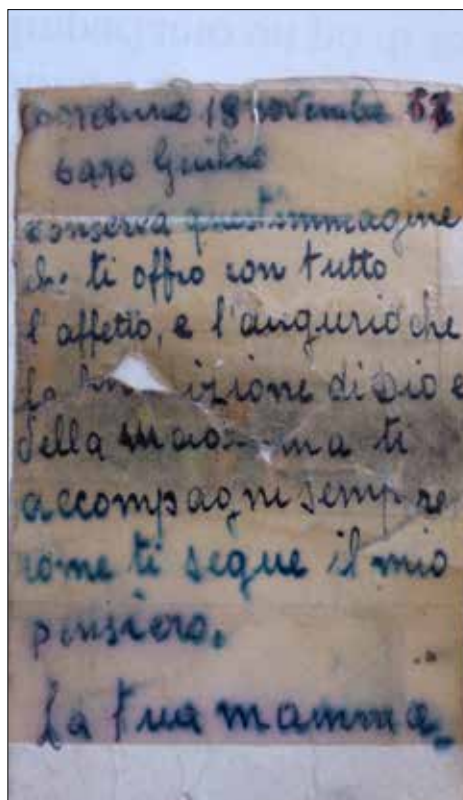 18 novembre
caro Giulino
conserva quest'immagine
che ti offro con tutto
l'affetto, e l'augurio che
la izione di Dio e
della ti
accompagni sempre
come ti segue il mio
pensiero.
La tua mamma